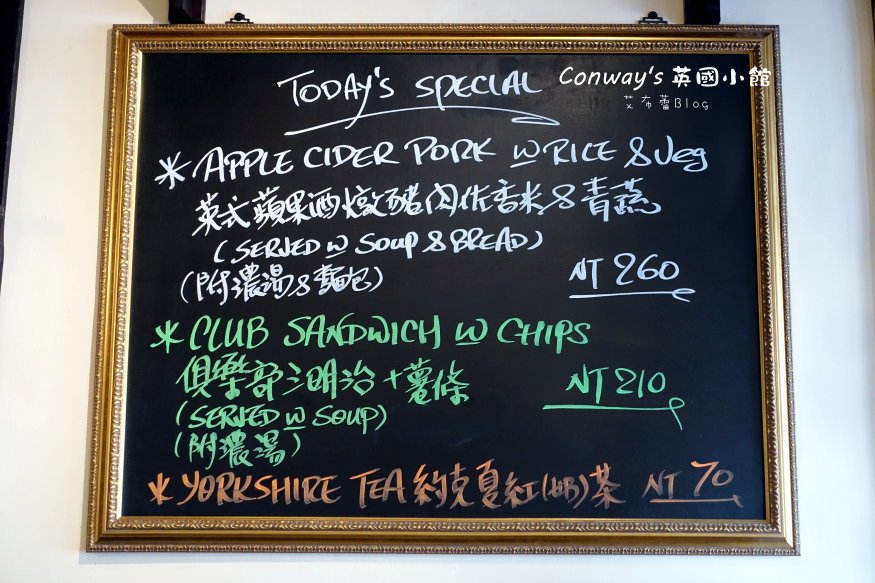 TODAY'S SPECIAL
Conway's 英國小館
艾布蕾Blog
* APPLE CIDER PORK W RICE & Veg
英式蘋果酒燉豬肉佐香米&青蔬
(SERVED W SOUP & BREAD)
(附濃湯&麵包) NT 260
* CLUB SANDWICH W CHIPS
俱樂部三明治+薯條 NT 210
(SERVED W SOUP)
(附濃湯)
* YORKSHIRE TEA 約克夏紅(奶)茶 NT 70